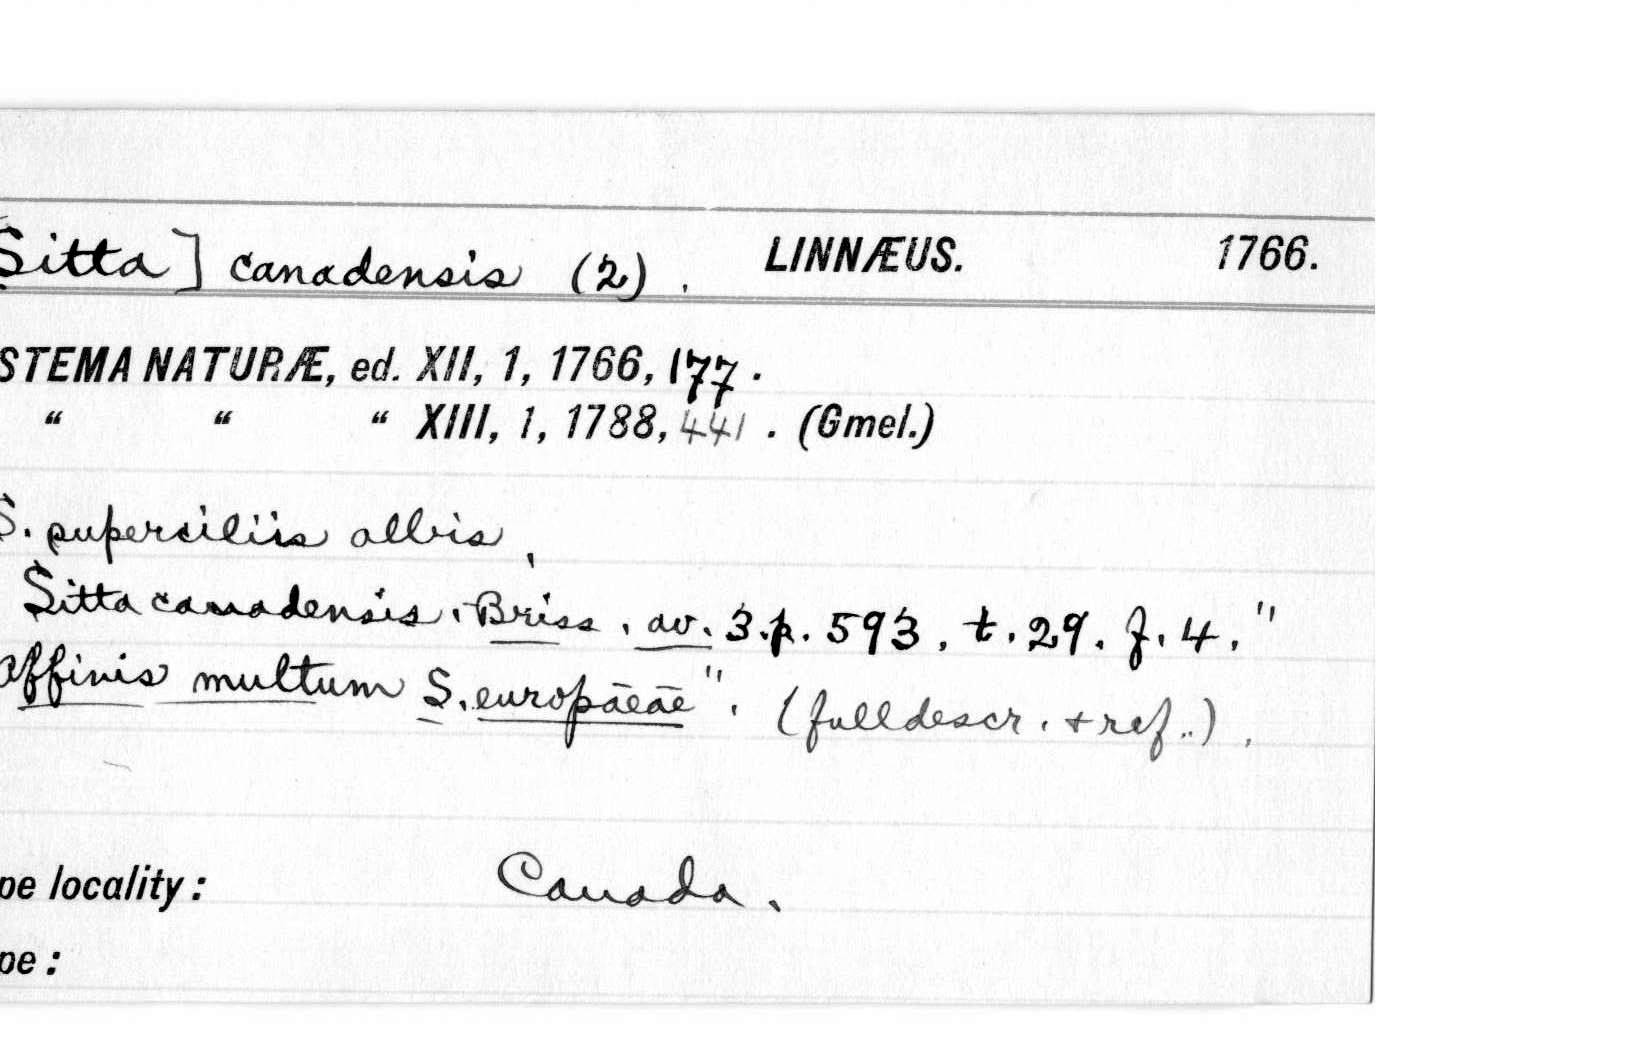 Sitta] canadensis (2). LINNÆUS. 1766.
STEMA NATURÆ, ed. XII, 1, 1766, 177.
“ “ “ XIII, 1, 1788, 441. (Gmel.)
S. superciliis albis,
Sitta canadensis. Briss. av. 3. p. 593. t. 29. f. 4."
Affinis multum S. europāeāe". (full descr. + ref..).
pe locality: Canada.
pe: